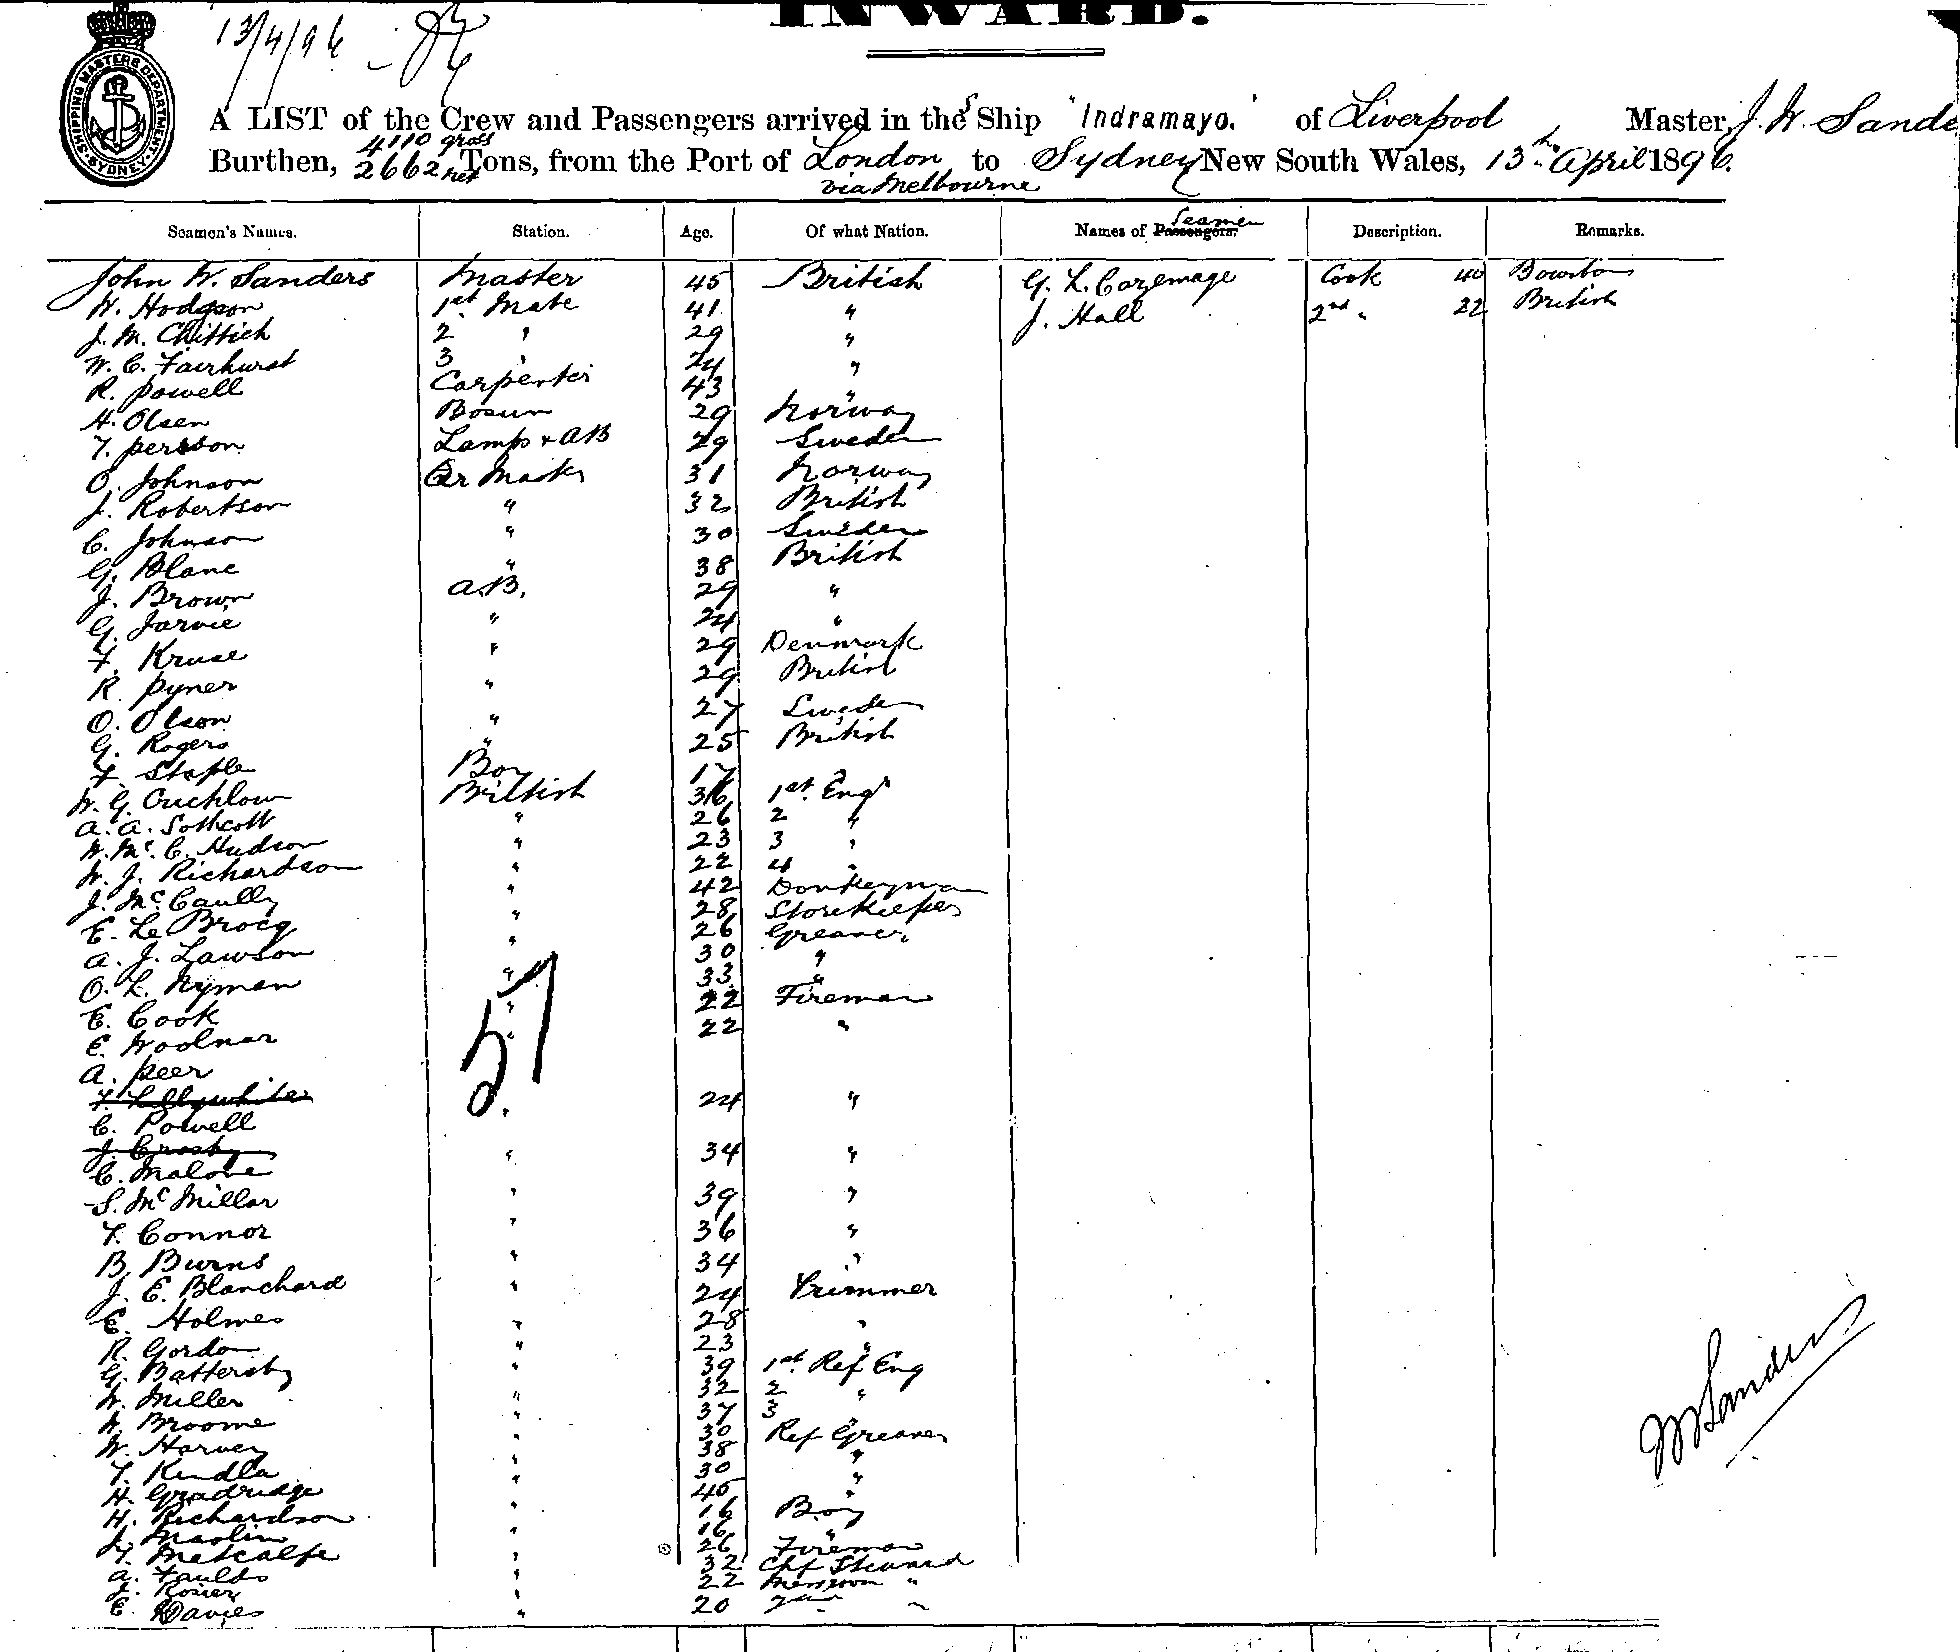 INWARD.
13/4/96
SHIPPING MASTERS DEPARTMENT SYDNEY
A LIST of the Crew and Passengers arrived in the S Ship "Indramayo." of Liverpool Master, J. W. Sande
Burthen, 4110 gross 2662 net Tons, from the Port of London to Sydney New South Wales, 13th April 1896.
via Melbourne
Seamen's Names. Station. Age. Of what Nation. Names of Passengers. Seamen Description. Remarks.
John W. Sanders Master 45 British G. L. Cazemage Cook 40
W. Hodgson 1st Mate 41 " J. Hall 2nd " 22 British
J. M. Chittich 2 " 29 "
W. C. Fairhurst 3 " 24 "
R. Powell Carpenter 43 "
H. Olsen Bosun 29 Norway
T. Persson Lamps + AB 29 Sweden
O. Johnson Qr Master 31 Norway
J. Robertson " 32 British
C. Johnson " 30 Sweden
G. Blane " 38 British
J. Brown A.B. 29 "
G. Jarvie " 24 "
F. Kruse " 29 Denmark
R. Pyner " 29 British
O. Olson " 27 Sweden
G. Rogers " 25 British
F. Staple Boy 17 "
W. G. Cuchlow British 36 1st Engr
A. A. Sothcott " 26 2 "
W. Mc. C. Hudson " 23 3 "
W. J. Richardson " 22 4 "
J. McCaully " 42 Donkeyman
E. Le Brocq " 28 Storekeeper
A. J. Lawson " 26 Greaser
O. L. Nyman " 30 "
E. Cook " 33 "
E. Woolnar " 22 Fireman
A. Peer " 22 "
F. Lillywhite
C. Powell " 24 "
J. Crosby
C. Malone " 34 "
S. McMillar " 39 "
T. Connor " 36 "
B. Burns " 34 "
J. E. Blanchard " 24 Trimmer
E. Holmes " 28 "
R. Gordon " 23 "
G. Battersby " 39 1st Ref Eng
W. Miller " 32 2 "
W. Broome " 37 3 "
W. Harvey " 30 Ref Greaser
T. Kindla " 38 "
H. Gradridge " 30 "
H. Richardson " 45 "
J. Maslin " 16 Boy
T. Metcalfe " 16 "
A. Faulds " 26 Fireman
J. Rosier " 32 Chf Steward
E. Davies " 22 Messroom "
" 20 2nd "
57
JW Sanders